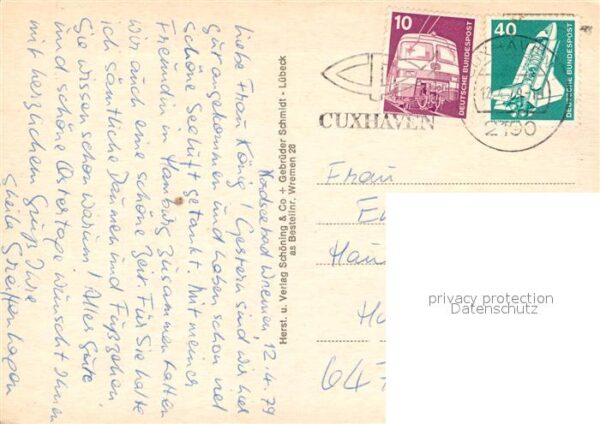 Nordseebad Wremen, 12.4.79
Liebe Frau König! Gestern sind wir hier
gut angekommen und haben schon viel
schöne Seeluft getankt. Mit meiner
Freundin in Hamburg zusammen hatten
wir auch eine schöne Zeit. Für Sie halte
ich sämtlich Daumen und Fußzehen
Sie wissen schon warum! Alles Gute
und schöne Ostertage wünscht Ihnen
mit herzlichem Gruß Ihre
Sheila Greiffenhagen
Herst. u. Verlag Schöning & Co + Gebrüder Schmidt - Lübeck
as Bestellnr. Wremen 28
10
DEUTSCHE BUNDESPOST
40
DEUTSCHE BUNDESPOST
CUXHAVEN
2190
Frau
privacy protection
Datenschutz
647